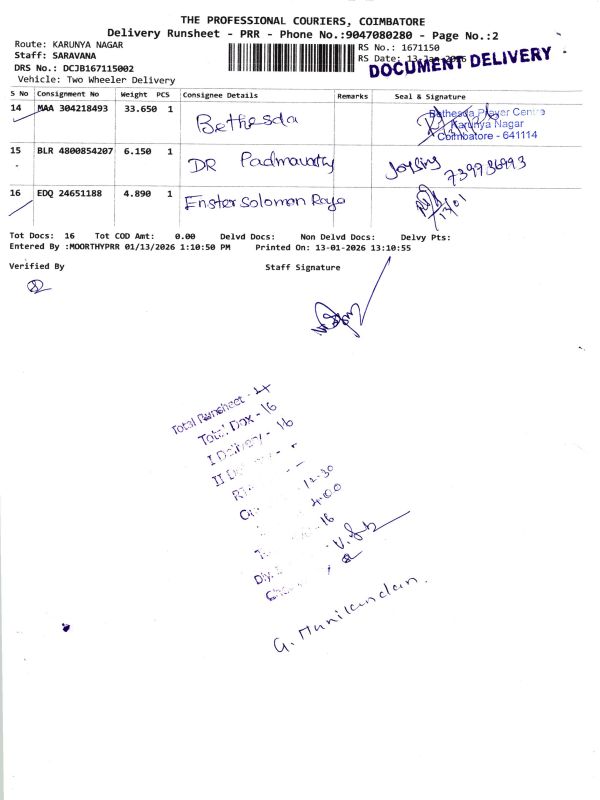 THE PROFESSIONAL COURIERS, COIMBATORE
Delivery Runsheet - PRR - Phone No.:9047080280 - Page No.:2
Route: KARUNYA NAGAR
RS No.: 1671150
Staff: SARAVANA
RS Date: 13-Jan-2026
DOCUMENT DELIVERY
DRS No.: DCJB167115002
Vehicle: Two Wheeler Delivery
S No Consignment No Weight PCS Consignee Details Remarks Seal & Signature
14 MAA 304218493 33.650 1 Bethesda
Bethesda Prayer Centre
Karunya Nagar
Coimbatore - 641114
15 BLR 4800854207 6.150 1 DR Padmavathy
16 EDQ 24651188 4.890 1 Enster Solomon Raja
13/01
Tot Docs: 16 Tot COD Amt: 0.00 Delvd Docs: Non Delvd Docs: Delvy Pts:
Entered By :MOORTHYPRR 01/13/2026 1:10:50 PM Printed On: 13-01-2026 13:10:55
Verified By Staff Signature
Total Runsheet - 4
Total Dox - 16
I Delivery - 16
II
12-30
4-00
16
G. Manikandan.